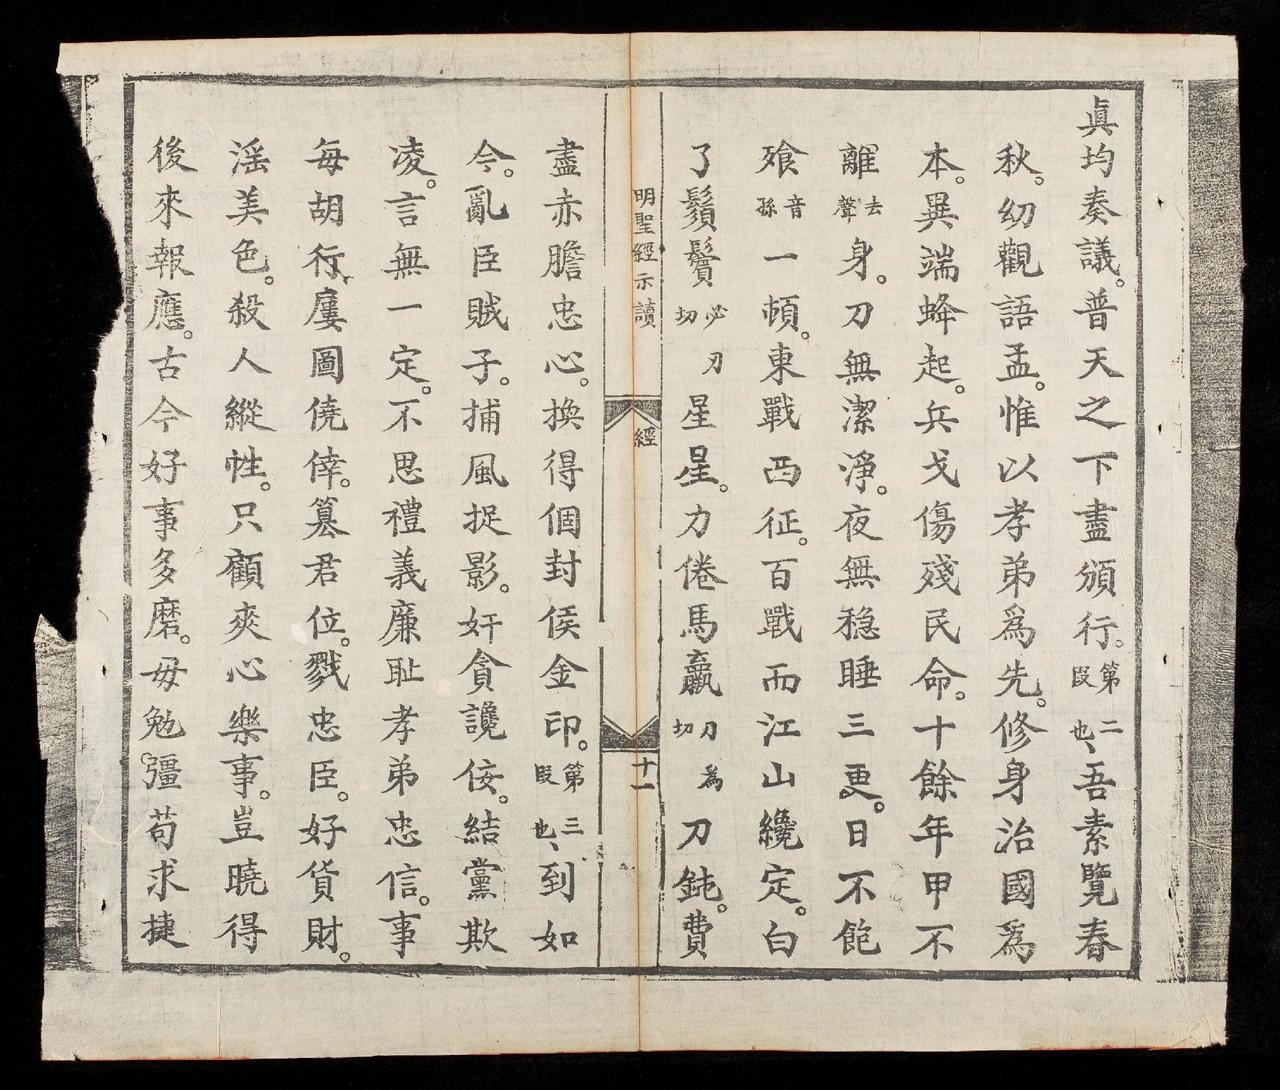 眞均奏議。普天之下盡頒行。第二段也、吾素覽春
秋。幼觀語孟。惟以孝弟爲先。修身治國爲
本。異端蜂起。兵戈傷殘民命。十餘年甲不
離去聲身。刀無潔淨。夜無穏睡三更。日不飽
飱音孫一頓。東戰西征。百戰而江山纔定。白
了鬚鬢必刃切星星。力倦馬羸刀爲切刀鈍。費
明聖經示讀 經 十一
盡赤膽忠心。換得個封侯金印。第三段也、到如
今。亂臣賊子。捕風捉影。奸貪讒佞。結黨欺
凌。言無一定。不思禮義廉耻孝弟忠信。事
每胡行、屢圖僥倖。簒君位。戮忠臣。好貨財。
滛美色。殺人縱性。只顧爽心樂事。豈曉得
後來報應。古今好事多磨。毋勉彊苟求捷